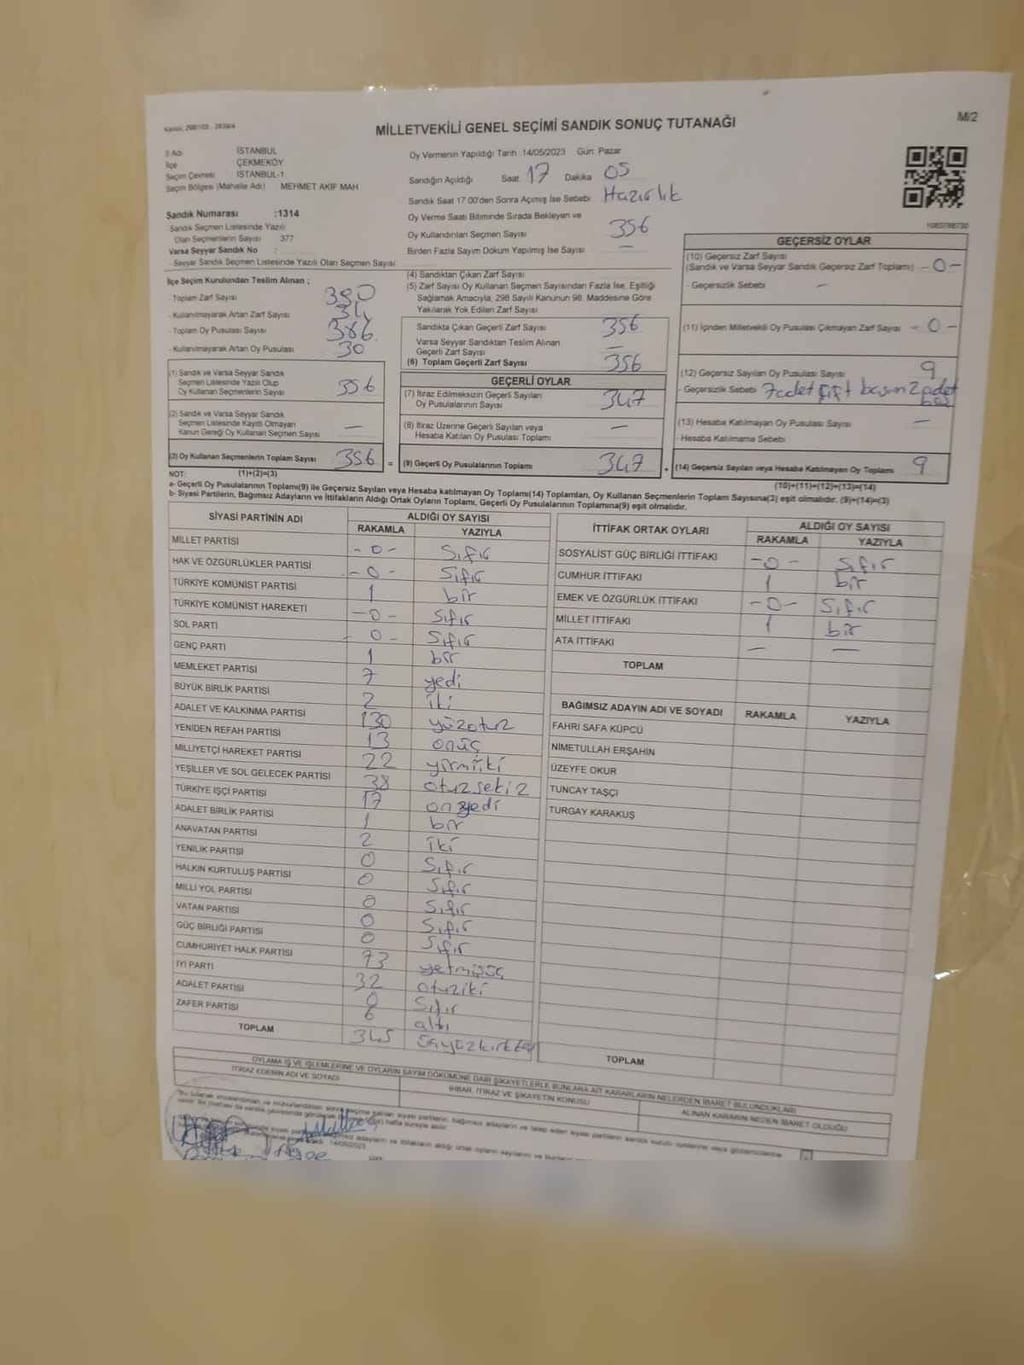 MİLLETVEKİLİ GENEL SEÇİMİ SANDIK SONUÇ TUTANAĞI
M/2
İl Adı İSTANBUL
İlçe ÇEKMEKÖY
Seçim Çevresi İSTANBUL-1
Seçim Bölgesi (Mahalle Adı) MEHMET AKİF MAH
Oy Vermenin Yapıldığı Tarih 14/05/2023 Gün: Pazar
Sandığın Açıldığı Saat 17 Dakika 05
Sandık Saat 17.00'den Sonra Açılmış İse Sebebi Hazırlık
Sandık Numarası :1314
Sandık Seçmen Listesinde Yazılı
Olan Seçmenlerin Sayısı 377
Varsa Seyyar Sandık No :
Seyyar Sandık Seçmen Listesinde Yazılı Olan Seçmen Sayısı
Oy Verme Saati Bitiminde Sırada Bekleyen ve
Oy Kullandırılan Seçmen Sayısı 356
Birden Fazla Sayım Döküm Yapılmış İse Sayısı —
İlçe Seçim Kurulundan Teslim Alınan ;
- Toplam Zarf Sayısı
- Kullanılmayarak Artan Zarf Sayısı
- Toplam Oy Pusulası Sayısı 386
- Kullanılmayarak Artan Oy Pusulası 30
(1) Sandık ve Varsa Seyyar Sandık
Seçmen Listesinde Yazılı Olup
Oy Kullanan Seçmenlerin Sayısı 356
(2) Sandık ve Varsa Seyyar Sandık
Seçmen Listesinde Kayıtlı Olmayan
Kanun Gereği Oy Kullanan Seçmen Sayısı —
(3) Oy Kullanan Seçmenlerin Toplam Sayısı 356
(1)+(2)=(3)
(4) Sandıktan Çıkan Zarf Sayısı
(5) Zarf Sayısı Oy Kullanan Seçmen Sayısından Fazla İse, Eşitliği
Sağlamak Amacıyla, 298 Sayılı Kanunun 98. Maddesine Göre
Yakılarak Yok Edilen Zarf Sayısı
Sandıkta Çıkan Geçerli Zarf Sayısı 356
Varsa Seyyar Sandıktan Teslim Alınan
Geçerli Zarf Sayısı —
(6) Toplam Geçerli Zarf Sayısı 356
GEÇERLİ OYLAR
(7) İtiraz Edilmeksizin Geçerli Sayılan
Oy Pusulalarının Sayısı 347
(8) İtiraz Üzerine Geçerli Sayılan veya
Hesaba Katılan Oy Pusulası Toplamı —
= (9) Geçerli Oy Pusulalarının Toplamı 347
GEÇERSİZ OYLAR
(10) Geçersiz Zarf Sayısı
(Sandık ve Varsa Seyyar Sandık Geçersiz Zarf Toplamı) -0-
- Geçersizlik Sebebi —
(11) İçinden Milletvekili Oy Pusulası Çıkmayan Zarf Sayısı -0-
(12) Geçersiz Sayılan Oy Pusulası Sayısı 9
- Geçersizlik Sebebi 7 adet çift basım 2 adet
boş
(13) Hesaba Katılmayan Oy Pusulası Sayısı —
- Hesaba Katılmama Sebebi
+ (14) Geçersiz Sayılan veya Hesaba Katılmayan Oy Toplamı 9
(10)+(11)+(12)+(13)=(14)
NOT:
a- Geçerli Oy Pusulalarının Toplamı(9) ile Geçersiz Sayılan veya Hesaba katılmayan Oy Toplamı(14) Toplamları, Oy Kullanan Seçmenlerin Toplam Sayısına(3) eşit olmalıdır. (9)+(14)=(3)
b- Siyasi Partilerin, Bağımsız Adayların ve İttifakların Aldığı Ortak Oyların Toplamı, Geçerli Oy Pusulalarının Toplamına(9) eşit olmalıdır.
SİYASİ PARTİNİN ADI ALDIĞI OY SAYISI
RAKAMLA YAZIYLA
MİLLET PARTİSİ -0- Sıfır
HAK VE ÖZGÜRLÜKLER PARTİSİ -0- Sıfır
TÜRKİYE KOMÜNİST PARTİSİ 1 bir
TÜRKİYE KOMÜNİST HAREKETİ -0- Sıfır
SOL PARTİ -0- Sıfır
GENÇ PARTİ 1 bir
MEMLEKET PARTİSİ 7 yedi
BÜYÜK BİRLİK PARTİSİ 2 iki
ADALET VE KALKINMA PARTİSİ 130 yüzotuz
YENİDEN REFAH PARTİSİ 13 onüç
MİLLİYETÇİ HAREKET PARTİSİ 22 yirmiiki
YEŞİLLER VE SOL GELECEK PARTİSİ 38 otuzsekiz
TÜRKİYE İŞÇİ PARTİSİ 17 onyedi
ADALET BİRLİK PARTİSİ 1 bir
ANAVATAN PARTİSİ 2 iki
YENİLİK PARTİSİ 0 Sıfır
HALKIN KURTULUŞ PARTİSİ 0 Sıfır
MİLLİ YOL PARTİSİ 0 Sıfır
VATAN PARTİSİ 0 Sıfır
GÜÇ BİRLİĞİ PARTİSİ 0 Sıfır
CUMHURİYET HALK PARTİSİ 73 yetmişüç
İYİ PARTİ 32 otuziki
ADALET PARTİSİ 0 Sıfır
ZAFER PARTİSİ 6 altı
TOPLAM 345
İTTİFAK ORTAK OYLARI ALDIĞI OY SAYISI
RAKAMLA YAZIYLA
SOSYALİST GÜÇ BİRLİĞİ İTTİFAKI -0- Sıfır
CUMHUR İTTİFAKI 1 bir
EMEK VE ÖZGÜRLÜK İTTİFAKI -0- Sıfır
MİLLET İTTİFAKI 1 bir
ATA İTTİFAKI — —
TOPLAM
BAĞIMSIZ ADAYIN ADI VE SOYADI RAKAMLA YAZIYLA
FAHRİ SAFA KÜPCÜ
NİMETULLAH ERŞAHİN
ÜZEYFE OKUR
TUNCAY TAŞÇI
TURGAY KARAKUŞ
TOPLAM
OYLAMA İŞ VE İŞLEMLERİNE VE OYLARIN SAYIM DÖKÜMÜNE DAİR ŞİKAYETLERLE BUNLARA AİT KARARLARIN NELERDEN İBARET BULUNDUKLARI
İTİRAZ EDENİN ADI VE SOYADI
İHBAR, İTİRAZ VE ŞİKAYETİN KONUSU
ALINAN KARARIN NEDEN İBARET OLDUĞU